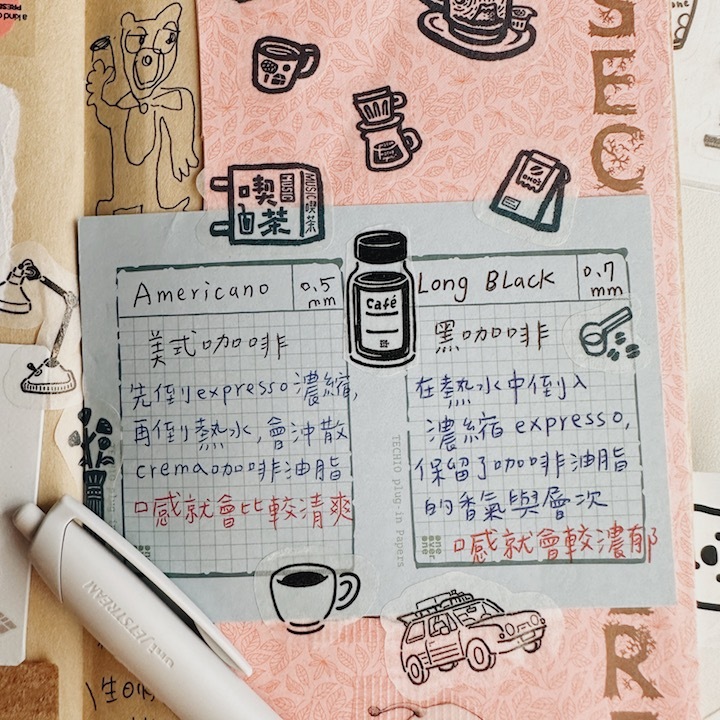 a kind of
PRESE
喫茶
MUSIC
MUSIC 喫茶
Americano
0.5 mm
美式咖啡
先倒expresso濃縮,
再倒熱水,會沖散
crema咖啡油脂
口感就會比較清爽
Café
Long Black
0.7 mm
黑咖啡
在熱水中倒入
濃縮expresso,
保留了咖啡油脂
的香氣與層次
口感就會較濃郁
TECHIO plug-in Papers
one
over
one
one
over
one
uni JETSTREAM
REC